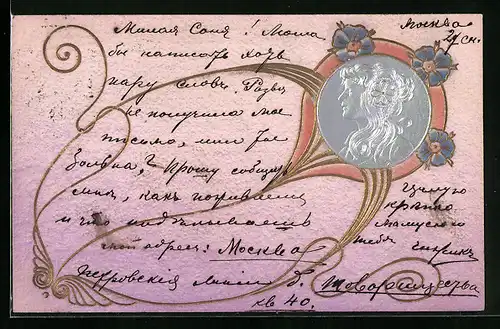 Москва
29/ сн.
Милая Соня! Могла
бы написать хоть
пару словъ. Развѣ
не получила мое
письмо, или ты
больна? Прошу сообщить
мнѣ, какъ поживаешь
и что подѣлываешь
мой адресъ: Москва
Петровскія линіи д. Товарищества
кв 40.
Цѣлую
крѣпко
тебя